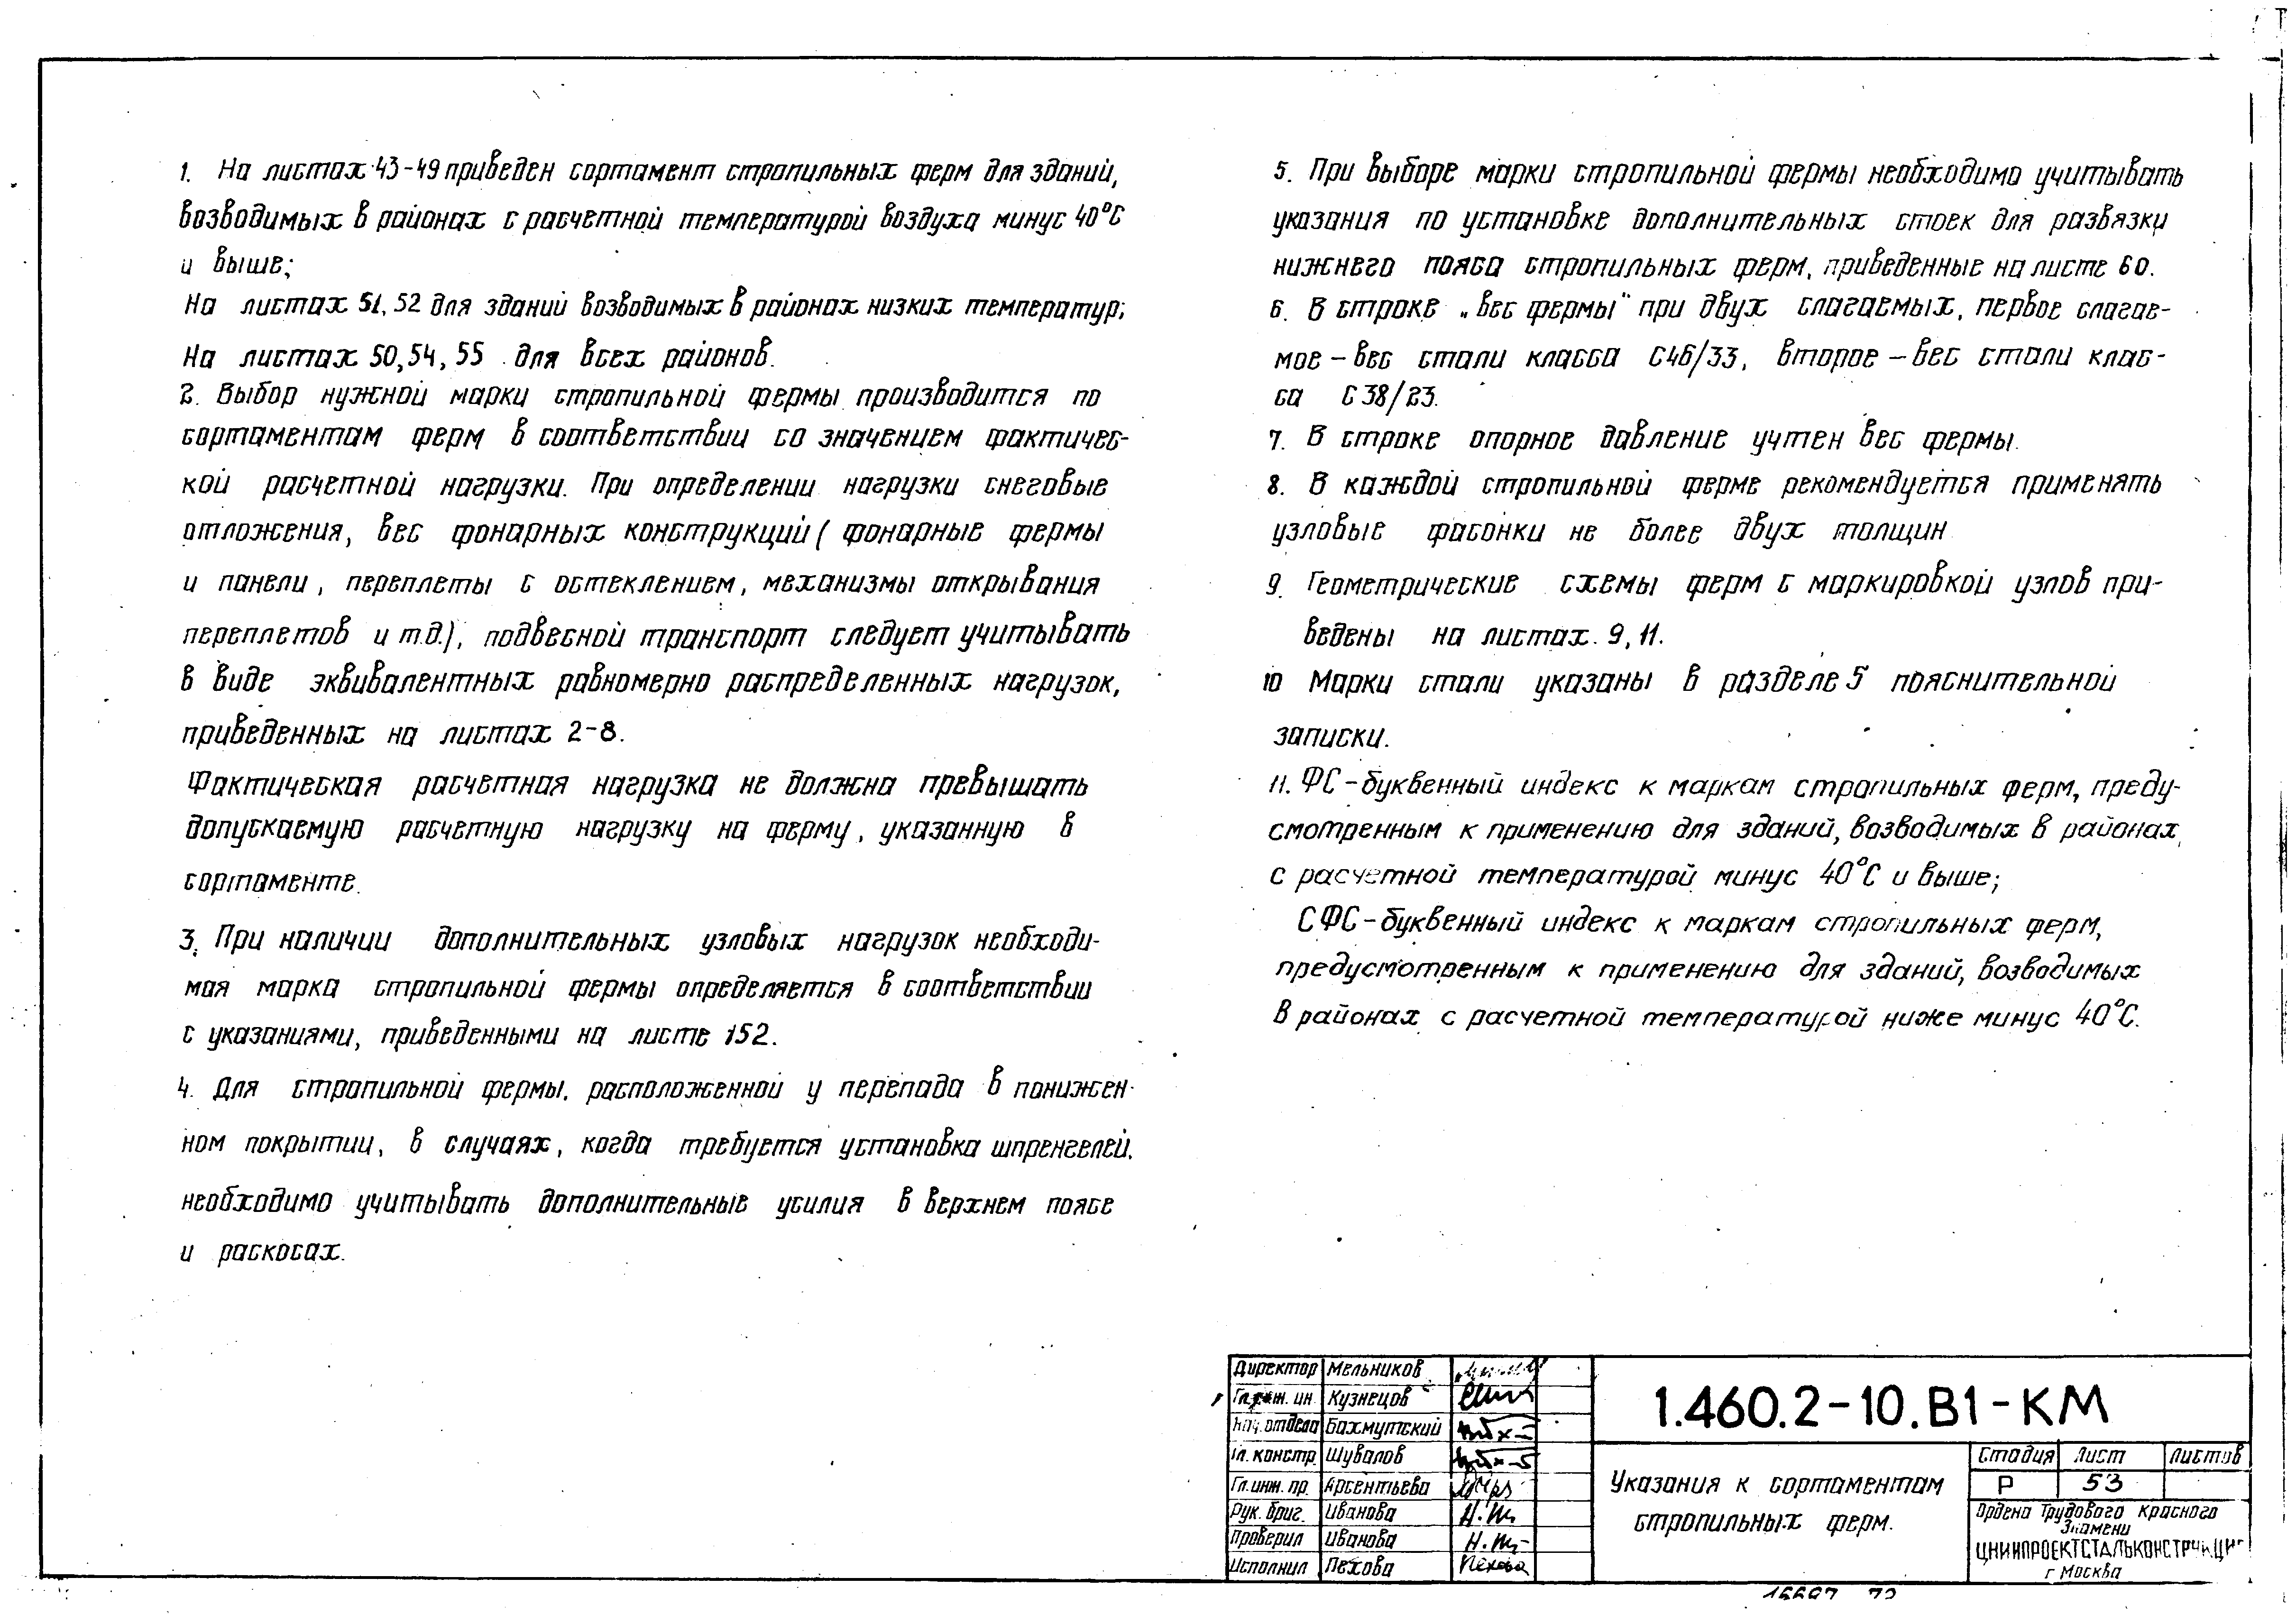 1. На листах 43-49 приведен сортамент стропильных ферм для зданий,
возводимых в районах с расчетной температурой воздуха минус 40°С
и выше;
На листах 51, 52 для зданий возводимых в районах низких температур;
На листах 50, 54, 55 для всех районов.
2. Выбор нужной марки стропильной фермы производится по
сортаментам ферм в соответствии со значением фактичес-
кой расчетной нагрузки. При определении нагрузки снеговые
отложения, вес фонарных конструкций (фонарные фермы
и панели, переплеты с остеклением, механизмы открывания
переплетов и т.д.), подвесной транспорт следует учитывать
в виде эквивалентных равномерно распределенных нагрузок,
приведенных на листах 2-8.
Фактическая расчетная нагрузка не должна превышать
допускаемую расчетную нагрузку на ферму, указанную в
сортаменте.
3. При наличии дополнительных узловых нагрузок необходи-
мая марка стропильной фермы определяется в соответствии
с указаниями, приведенными на листе 152.
4. Для стропильной фермы, расположенной у перепада в понижен-
ном покрытии, в случаях, когда требуется установка шпренгелей,
необходимо учитывать дополнительные усилия в верхнем поясе
и раскосах.
5. При выборе марки стропильной фермы необходимо учитывать
указания по установке дополнительных стоек для развязки
нижнего пояса стропильных ферм, приведенные на листе 60.
6. В строке „Вес фермы" при двух слагаемых, первое слагае-
мое – вес стали класса С46/33, второе – вес стали клас-
са С38/23.
7. В строке опорное давление учтен вес фермы.
8. В каждой стропильной ферме рекомендуется применять
узловые фасонки не более двух толщин
9. Геометрические схемы ферм с маркировкой узлов при-
ведены на листах 9, 11.
10 Марки стали указаны в разделе 5 пояснительной
записки.
11. ФС – буквенный индекс к маркам стропильных ферм, преду-
смотренным к применению для зданий, возводимых в районах
с расчетной температурой минус 40°С и выше;
СФС – буквенный индекс к маркам стропильных ферм,
предусмотренным к применению для зданий, возводимых
в районах с расчетной температурой ниже минус 40°С.
Директор Мельников
Гл. инж. ин Кузнецов
Нач. отдела Бахмутский
Гл. констр. Шувалов
Гл. инж. пр. Арсентьева
Рук. бриг. Иванова Н.Ш
Проверил Иванова Н.Ш
Исполнил Пехова Пехова
1.460.2-10.В1-КМ
Указания к сортаментам
стропильных ферм.
Стадия Лист Листов
Р 53
Ордена Трудового Красного
Знамени
ЦНИИПРОЕКТСТАЛЬКОНСТРУКЦИЯ
г Москва